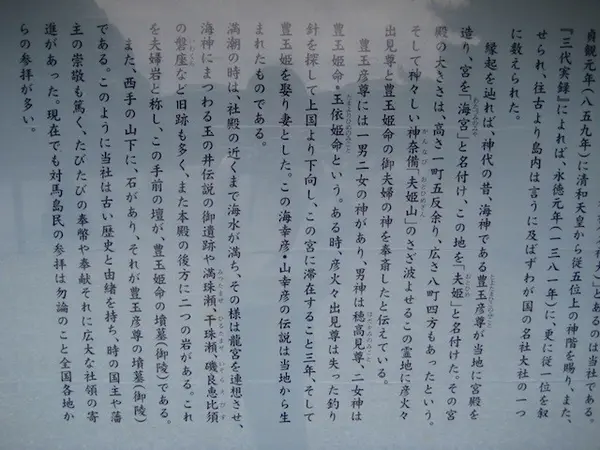 とあるのは当社である。
貞観元年（八五九年）に清和天皇から従五位上の神階を賜り、また、
『三代実録』によれば、永徳元年（一三八一年）に更に従一位を叙
せられ、往古より島内は言うに及ばずわが国の名社大社の一つ
に数えられた。
縁起を辿れば、神代の昔、海神である豊玉彦尊が当地に宮殿を
造り、宮を「海宮」と名付け、この地を「夫姫」と名付けた。その宮
殿の大きさは、高さ一町五反余り、広さ八町四方もあったという。
そして神々しい神奈備「夫姫山」のさざ波よせるこの霊地に彦火々
出見尊と豊玉姫命の御夫婦の神を奉斎したと伝えている。
豊玉彦尊には一男二女の神があり、男神は穂高見尊、二女神は
豊玉姫命・玉依姫命という。ある時、彦火々出見尊は失った釣り
針を探して上国より下向し、この宮に滞在すること三年、そして
豊玉姫を娶り妻とした。この海幸彦・山幸彦の伝説は当地から生
まれたものである。
満潮の時は、社殿の近くまで海水が満ち、その様は龍宮を連想させ、
海神にまつわる玉の井伝説の御遺跡や満珠瀬、干珠瀬、磯良恵比須
の磐座など旧跡も多く、また本殿の後方に二つの岩がある。これ
を夫婦岩と称し、この手前の壇が、豊玉姫命の墳墓（御陵）である。
また、西手の山下に、石があり、それが豊玉彦尊の墳墓（御陵）
である。このように当社は古い歴史と由緒を持ち、時の国主や藩
主の崇敬も篤く、たびたびの奉幣や奉献それに広大な社領の寄
進があった。現在でも対馬島民の参拝は勿論のこと全国各地か
らの参拝が多い。